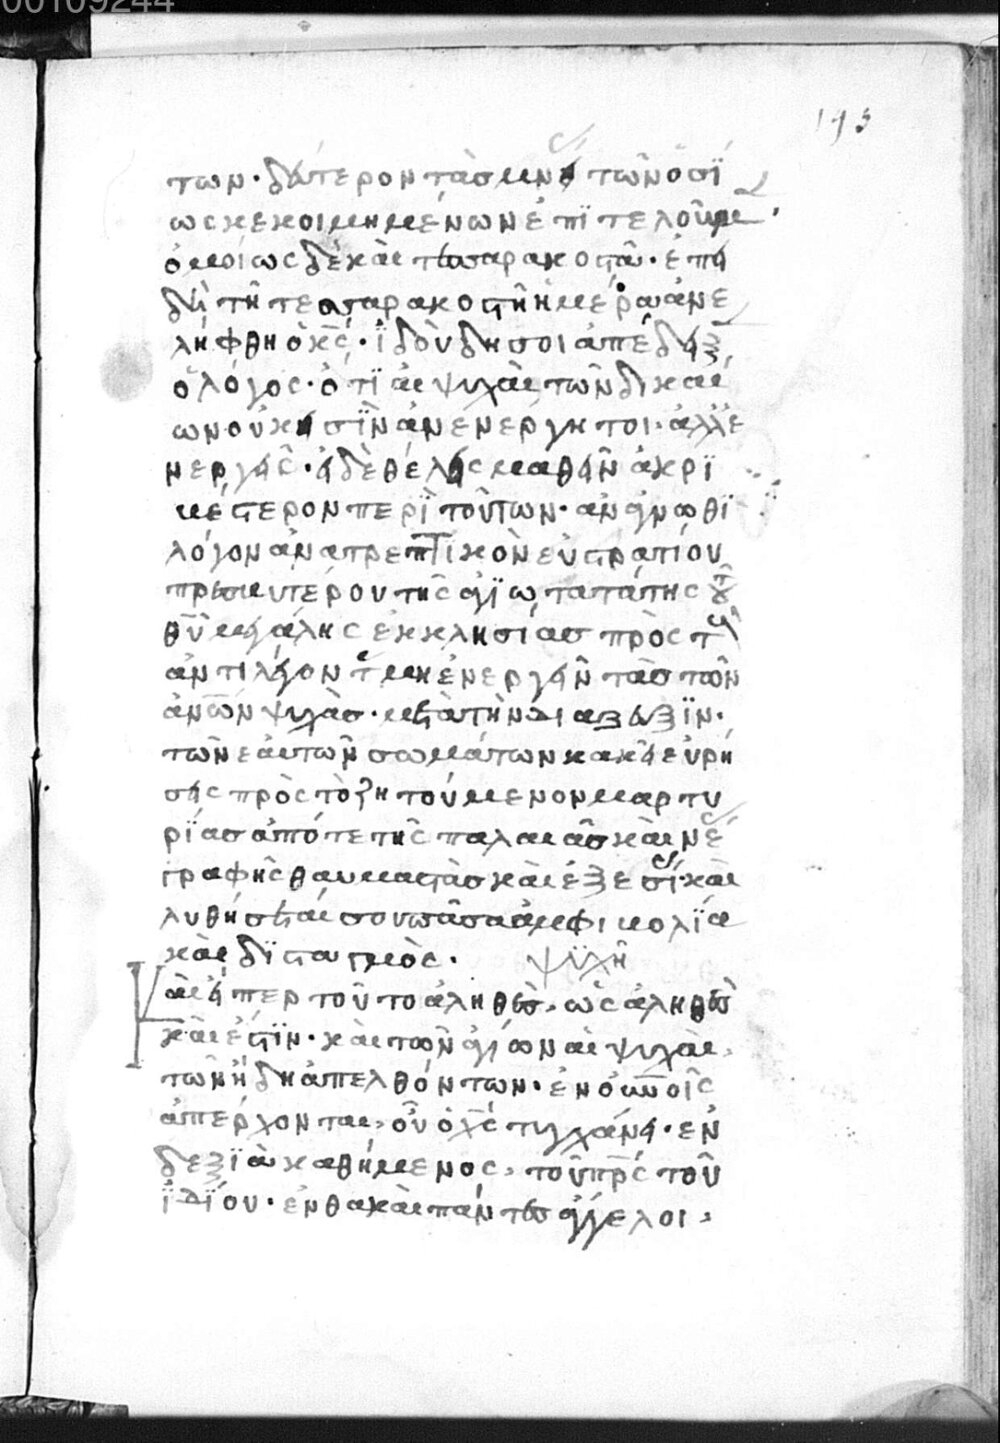 00109244
193
των· δεύτερον τὰς μνεί τῶν ὁσϊ
ως κεκοιμημένων ἐπϊτελοῦμ
ὁμοίως δὲ καὶ τεσσαρακοστά· ἐπει
δὴ τῆ τεσσαρακοστῆ ἡμέρα ἀνε
λήφθη ὁ κ̅ς· ἰδοὺ δή σοι ἀπέδειξ
ὁ λόγος· ὅτϊ αἱ ψυχαὶ τῶν δικαί
ων οὐκ εἰσϊν ἀνενέργητοι· ἀλλ' ἐ
νεργεῖς· εἰ δὲ θέλεις μαθεῖν ἀκρϊ
βέστερον περῒ τούτων· ἀνάγνωθϊ
λόγον ἀνατρεπτικὸν εὐστρατίου
πρεσβυτέρου τῆς ἁγϊωτάτης τοῦ
θ̅υ μεγάλης ἐκκλησίας πρὸς τ
ἀντιλέγοντ μὴ ἐνεργεῖν τὰς τῶν
ἀν̅ων ψυχὰς· μετὰ τὴν διάζευξϊν·
τῶν ἑαυτῶν σωμάτων κακεῖ εὑρή
σεις πρὸς τὸ ζητούμενον μαρτυ
ρίας ἀπό τε τῆς παλαιᾶς καὶ νέ
γραφῆς θαυμαστὰς καὶ ἐξεσί· καὶ
λυθήσεταί σου πᾶσα ἀμφιβολϊα
καὶ δϊσταγμὸς· ψϋχῆ
Καὶ εἴπερ τοῦτο ἀληθῶς, ὡς ἀληθῶς
καὶ ἐστϊν· καὶ τῶν ἁγίων αἱ ψυχαὶ,
τῶν ἤδη ἀπελθόντων· ἐν ο̅υ̅νοῖς
ἀπέρχονται, οὗ ὁ χ̅ς τυγχάνει· ἐν
δεξϊᾶ καθήμενος, τοῦ π̅ρ̅ς τοῦ
ἰδίου· ἔνθα καὶ πάντες ἄγγελοι,